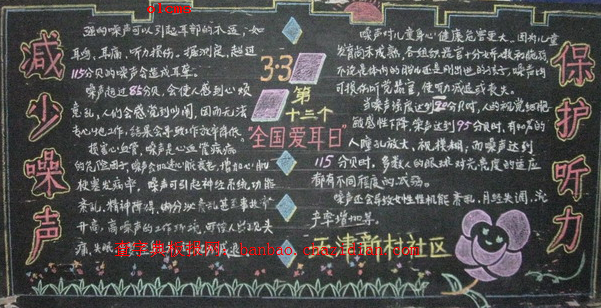 减少噪声
强的噪声可以引起耳部的不适,如
耳鸣、耳痛、听力损伤。据测定,超过
115分贝的噪声会造成耳聋。
噪声超过85分贝,会使人感到心烦
意乱,人们会感觉到吵闹,因而无法
专心地工作,结果会导致工作效率降低。
损害心血管。噪声是心血管疾病
的危险因子,噪声会加速心脏衰老,增加心肌
梗塞发病率。噪声可引起神经系统功能
紊乱、精神障碍、内分泌紊乱甚至事故率
升高。高噪声的工作环境,可使人出现头
3·3
第
十三个
"全国爱耳日"
噪声对儿童身心健康危害更大。因为儿童
发育尚未成熟,各组织器官十分娇嫩和脆弱,
不论是体内的胎儿还是刚出世的孩子,噪声均
可损伤听觉器官,使听力减退或丧失。
当噪声强度达到90分贝时,人的视觉细胞
敏感性下降,噪声达到95分贝时,有40%的
人瞳孔放大,视模糊,而噪声达到
115分贝时,多数人的眼球对光亮度的适应
都有不同程度的减弱。
噪声还会导致女性性机能紊乱,月经失调,流
产率增加等。
天津新村社区
保护听力